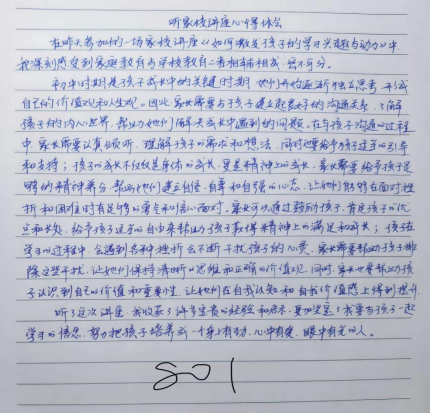 听家校讲座心得体会
在昨天参加的一场家校讲座《如何激发孩子的学习兴趣与动力》中,
我深刻感受到家庭教育与学校教育二者相辅相成,密不可分。
初中时期是孩子成长中的关键时期,他们开始逐渐独立思考,形成
自己的价值观和人生观。因此,家长需要与孩子建立起良好的沟通关系,了解
孩子的内心世界,帮助他们解决成长中遇到的问题。在与孩子沟通的过程
中,家长需要认真倾听,理解孩子的需求和想法,同时也要给予孩子适当的引导
和支持;孩子的成长不仅仅是身体的成长,更是精神上的成长,家长需要给予孩子足
够的精神养分,帮助他们建立自信、自尊和自强的心态,让他们能够在面对挫
折和困难时有足够的勇气和信心面对,家长可以通过鼓励孩子,肯定孩子的优
点和长处,给予孩子适当的自由来帮助孩子获得精神上的满足和成长;孩子在
学习的过程中,会遇到各种挫折会不断干扰孩子的心灵,家长需要帮助孩子排
除这些干扰,让他们保持清晰的思维和正确的价值观,同时,家长也要帮助孩
子认识到自己的价值和重要性,让他们在自我认知和自我价值感上得到提升
听了这次讲座,我收获了许多宝贵的经验和启示,更加坚定了我要与孩子一起
学习的信念,努力把孩子培养成一个身上有劲、心中有爱、眼中有光的人。
801